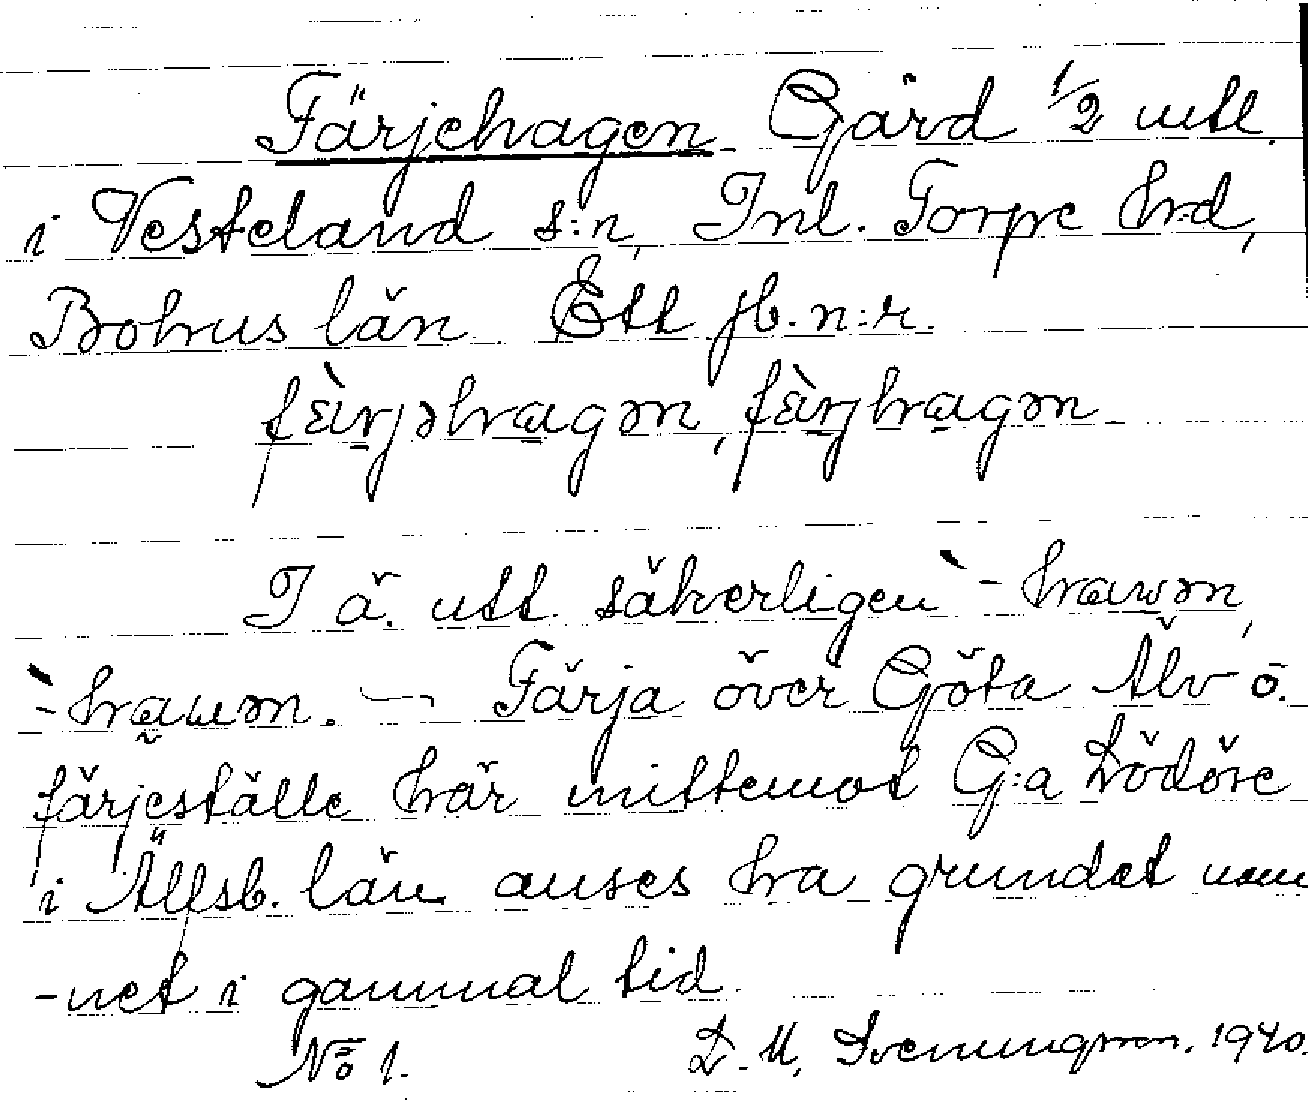 Färjehagen Gård 1/2 mtl.
i Vesteland s:n, Inl. Torpe hrd,
Bohus län Ett jb. n:r.
fæ̀rjəhagən, fæ̀rjhagən
I ä. utt. säkerligen `-hawən,
`-hauən. — Färja över Göta Älv o.
färjeställe här mittemot G:a Lödöse
i Älfsb. län anses ha grundet nam
-net i gammal tid.
No 1. D. M. Svenungsson. 1940.